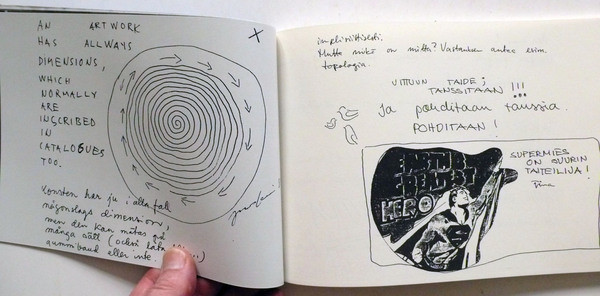 AN ARTWORK
HAS ALLWAYS
DIMENSIONS,
WHICH
NORMALLY
ARE
INSCRIBED
IN
CATALOGUES
TOO.
X
Konsten har ju i alla fall
någonslags dimension,
men den kan mätas på
många sätt (också
gummiband eller inte.
implisiittisesti.
Mutta mikä on mitta? Vastauksen antaa esim.
topologia.
VITTUUN TAIDE;
TANSSITAAN!!!
Ja pohditaan tanssia.
POHDITAAN!
EARTH'S
GREATEST
HERO
SUPERMIES
ON SUURIN
TAITEILIJA!